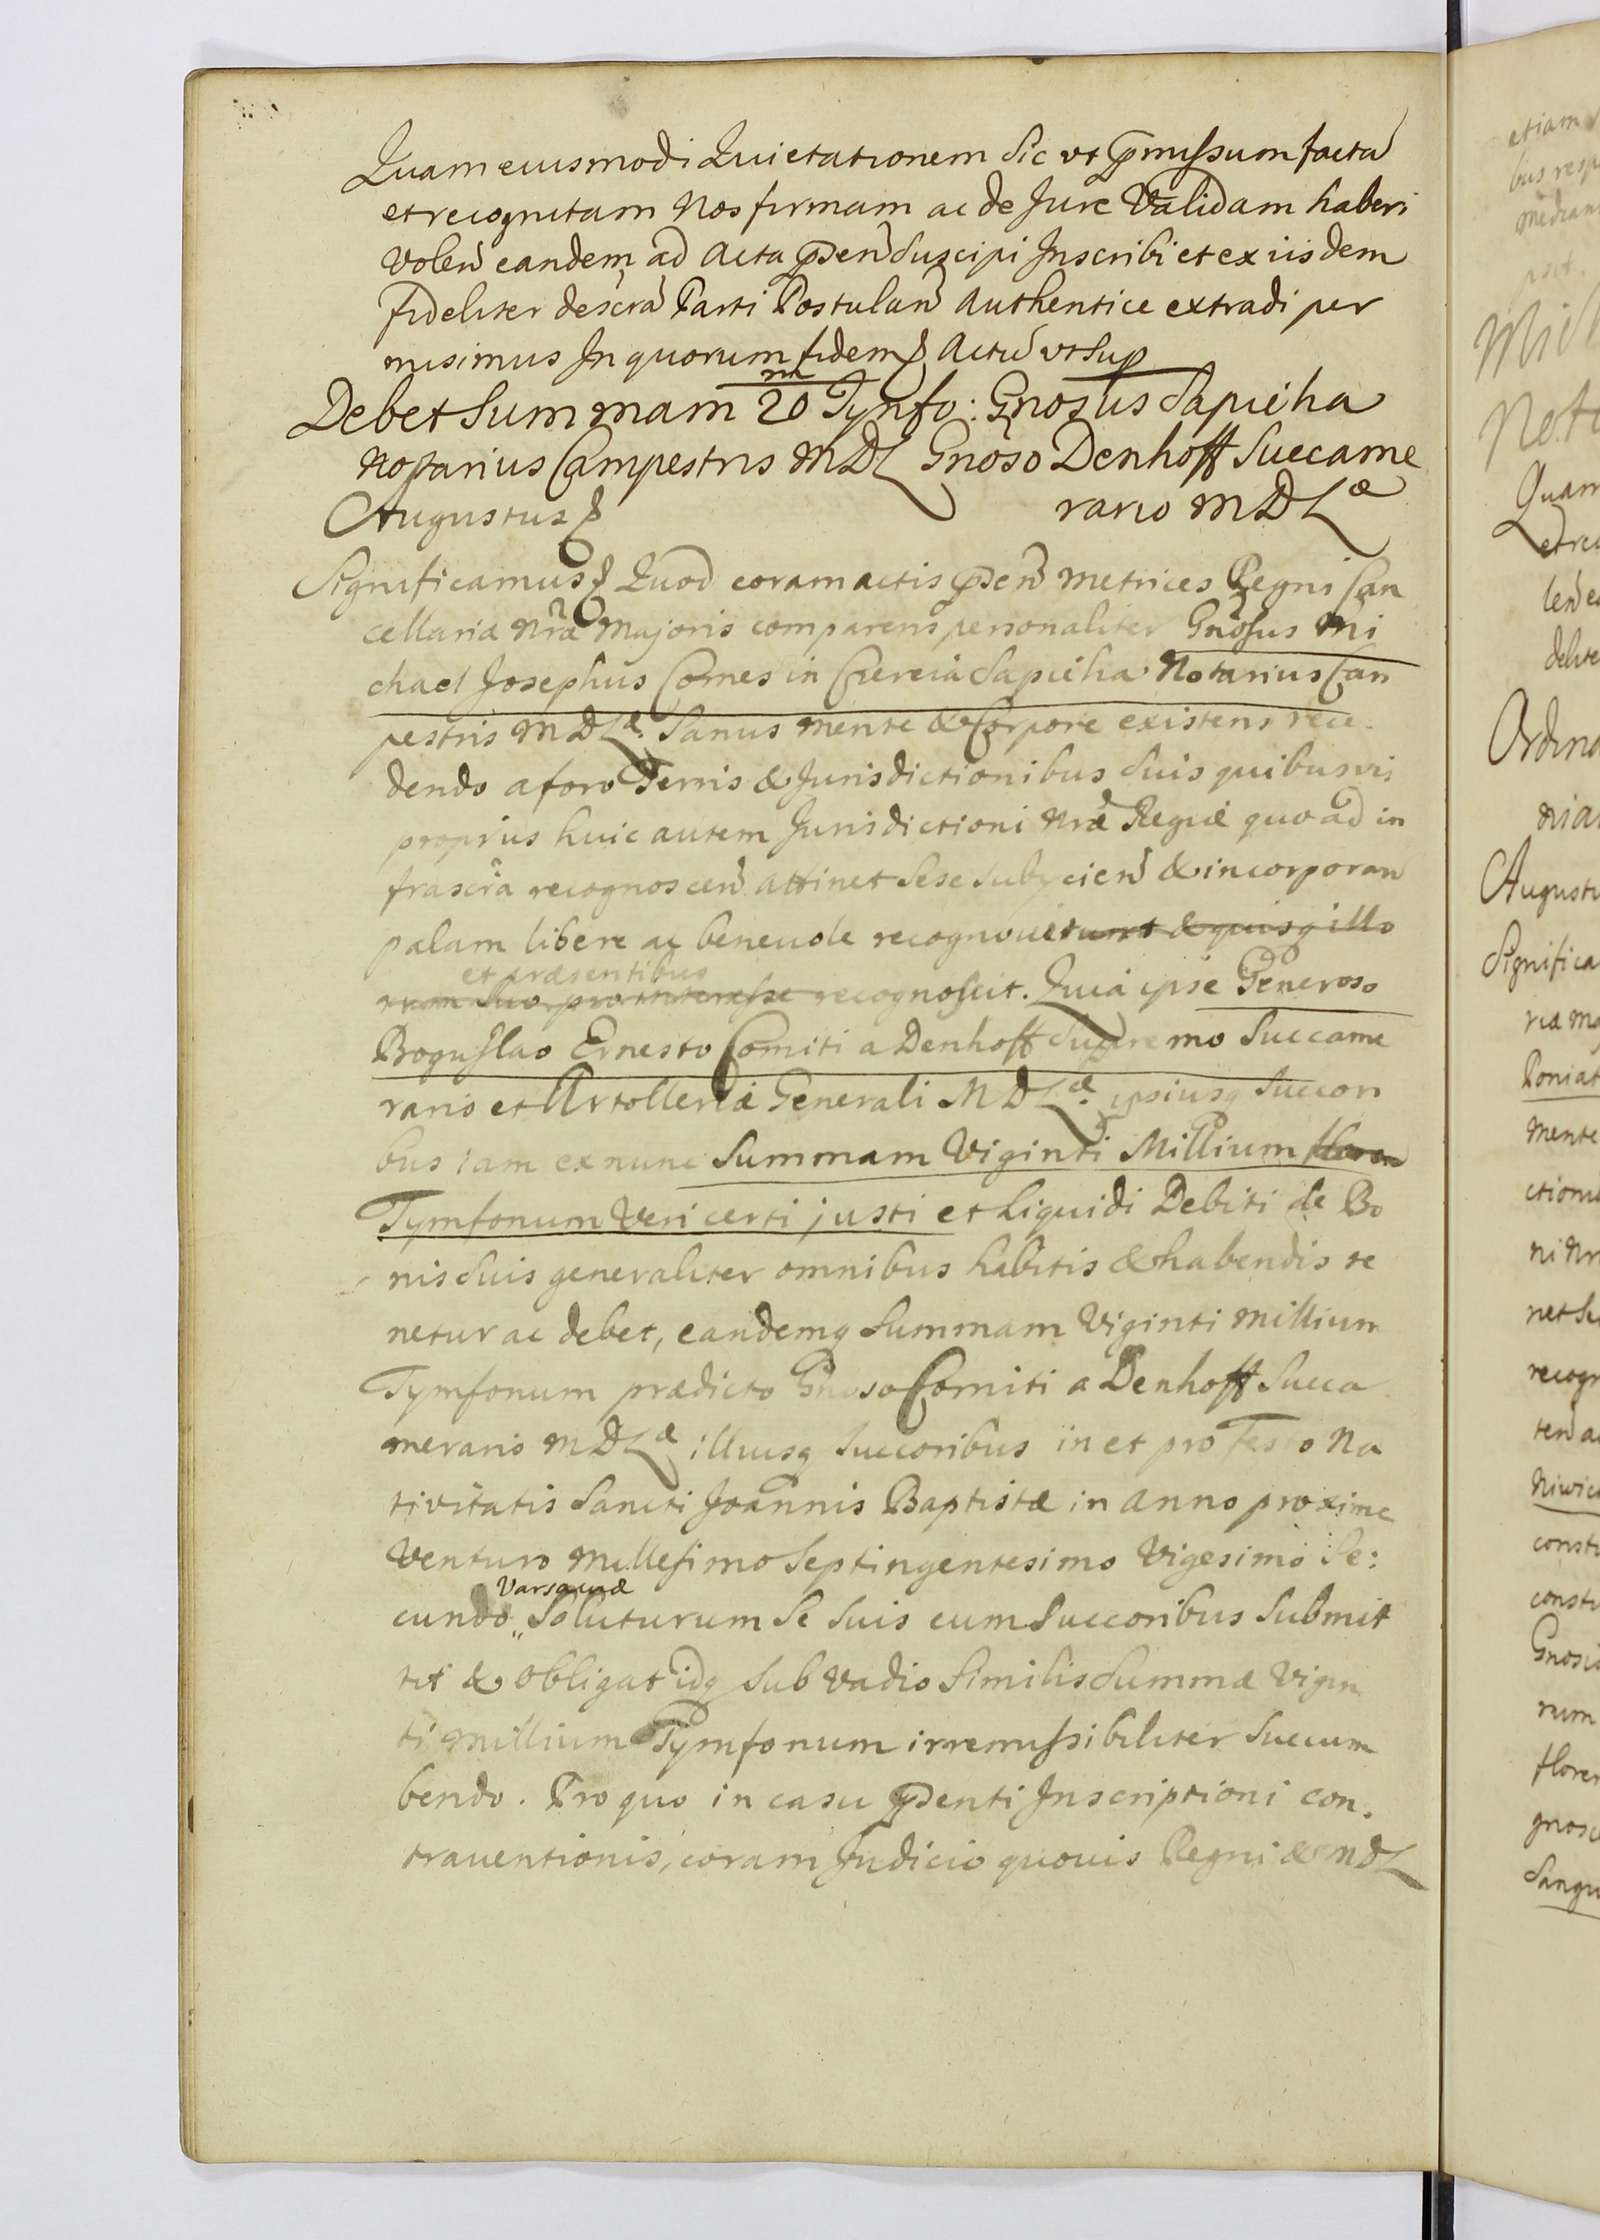 Quam eiusmodi Quietationem Sic vt pmissum facta
et recognitam Nos firmam ac de Jure Validam haberi
Volen eandem ad Acta psen Suscipi Inscribi et ex iisdem
fideliter descra Parti Postulan Authentice extradi per
misimus In quorum fidem Actu vt Sup
Debet Summam 20 m Tynfo: Gnosus Sapieha
Notarius Campestris MDL Gnoso Denhoff Succame
rario MDLæ
Augustus
Significamus Quod coram actis psen Metrices Regni Can
cellariæ Nræ Majoris comparens personaliter Gnosus Mi
chael Josephus Comes in Czereia Sapieha Notarius Cam
pestris MDLæ. Sanus mente & Corpore existens rece-
dendo a foro Terris & Jurisdictionibus Suis quibusvis
proprius huic autem Jurisdictioni Nræ Regiæ quo ad in
frascra recognoscen attinet Sese Subycien & incorporan
palam libere ac beneuole recognouerunt & quisq illo
et præsentibus
rum Suo pro interesse recognoscit. Quia ipse Generoso
Boguslao Ernesto Comiti a Denhoff Supremo Succame
rario et Artolleriæ Generali MDLæ. ipsiusq Succori
bus iam ex nunc Summam Viginti Millium floren
Tymfonum Veri certi justi et Liquidi Debiti de Bo
nis Suis generaliter omnibus habitis & habendis te
netur ac debet, eandemq Summam Viginti Millium
Tymfonum prædicto Gnoso Comiti a Denhoff Succa
merario MDLæ illiusq Succoribus in et pro Festo Na
tivitatis Sancti Joannis Baptistæ in Anno proxime
Venturo Millesimo Septingentesimo Vigesimo Se:
Varsauiæ
cundo,, Soluturum Se Suis cum Succoribus Submit
tit & Obligat idq Sub Vadio Similis Summæ Vigin
ti Millium Tymfonum irremissibiliter Succum
bendo. Pro quo in casu psenti Inscriptioni con.
trauentionis, coram Judicio quouis Regni & MDL
etiam
bus resp
median
Mich
Note
Quam
et rec
len ea
delite
Ordina
nia
Augustu
Significa
riæ Ma
Poniat
mente
ctioni
ni Nr
net Se
recogn
ten ac
const
const
Gnosi
rum
floren
gnosc
Sangu